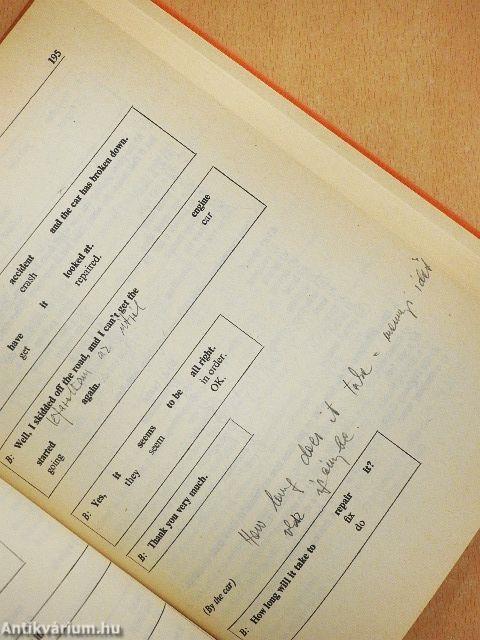 195
accident and the car has broken down.
crash
have it looked at.
get repaired.
B: Well, I skidded off the road, and I can't get the engine
car
az
started again.
going
B: Yes, it seems to be all right.
they seem in order.
OK.
B: Thank you very much.
How long does it take =
(By the car)
B: How long will it take to repair it?
fix
do
Antikvárium.hu